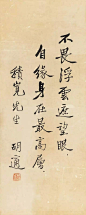 不畏浮雲遮望眼
自緣身在最高層
積寬先生
胡適